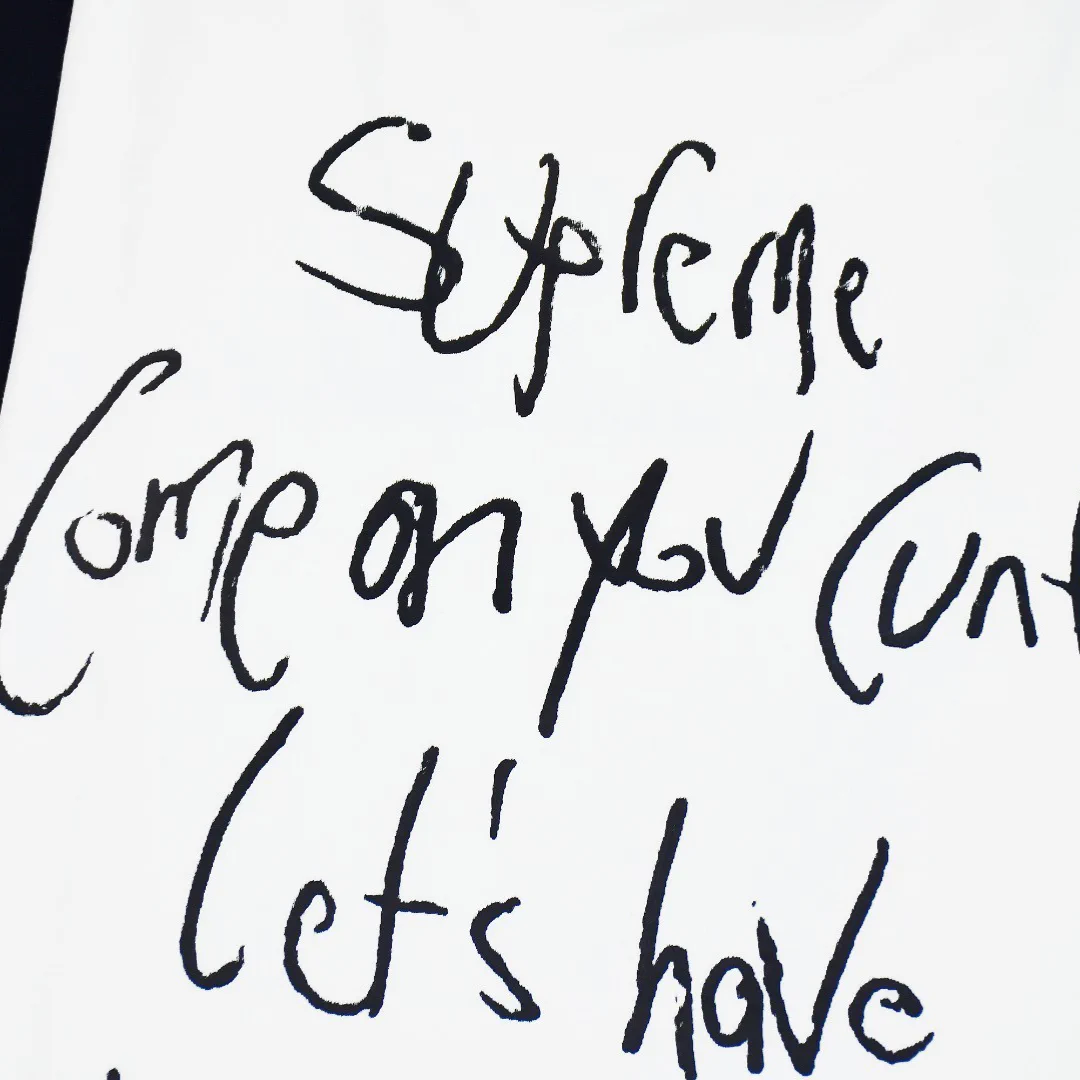 Supreme
Come on you Cunt
Let's have